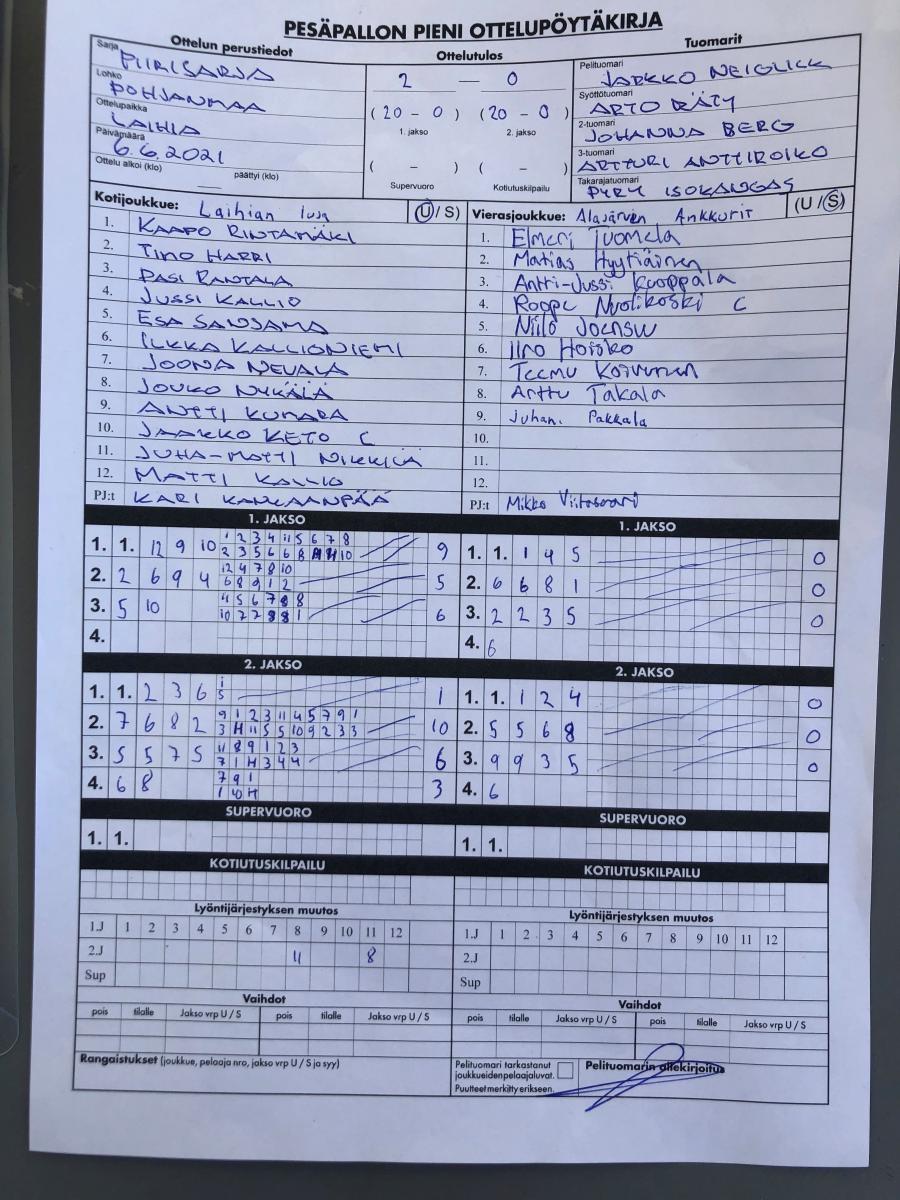 PESÄPALLON PIENI OTTELUPÖYTÄKIRJA
Ottelun perustiedot
Ottelutulos
Tuomarit
Sarja PIIRISARJA
Lohko POHJANMAA
Ottelupaikka LAIHIA
Päivämäärä 6.6.2021
Ottelu alkoi (klo) päättyi (klo)
2 — 0
(20 - 0) (20 - 0)
1. jakso 2. jakso
( - ) ( - )
Supervuoro Kotiutuskilpailu
Pelituomari JARKKO NEIGLICK
Syöttötuomari ARTO RÄTY
2-tuomari JOHANNA BERG
3-tuomari ARTTURI ANTTIROIKO
Takarajatuomari PYRY ISOKANGAS
Kotijoukkue: Laihian Luja (U/S)
1. KAAPO RINTAMÄKI
2. TIMO HARRI
3. PASI RANTALA
4. JUSSI KALLIO
5. ESA
6. ILKKA KALLIONIEMI
7. JOONA NEVALA
8. JOUKO NYKÄLÄ
9. ANTTI KUMARA
10. JAAKKO KETO C
11. JUHA-MATTI NIKKILÄ
12. MATTI KALLIO
PJ:t KARI KANKAANPÄÄ
Vierasjoukkue: Alajärven Ankkurit (U/S)
1. Elmeri Tuomela
2. Matias Hyytiäinen
3. Antti-Jussi Kuoppala
4. Roope Nuolikoski C
5. Niilo Joensuu
6. Iiro Hoisko
7. Teemu Koivunen
8. Arttu Takala
9. Juhani Pakkala
10.
11.
12.
PJ:t Mikko Viitasaari
1. JAKSO
1. 1. 12 9 10 9
1 2 3 4 11 5 6 7 8
2 3 5 6 6 8 10
2. 2 6 9 4 5
12 4 7 8 10
6 8 9 1 2
3. 5 10 6
4 5 6 7 8 8
10 7 7 8 8 1
4.
1. JAKSO
1. 1. 1 4 5 0
2. 6 6 8 1 0
3. 2 2 3 5 0
4. 6
2. JAKSO
1. 1. 2 3 6 1
1
5
2. 7 6 8 2 10
9 1 2 3 11 4 5 7 9 1
3 11 5 5 10 9 2 3 3
3. 5 5 7 5 6
11 8 9 1 2 3
7 1 3 4 4
4. 6 8 3
7 9 1
1 10
2. JAKSO
1. 1. 1 2 4 0
2. 5 5 6 8 0
3. 9 9 3 5 0
4. 6
SUPERVUORO
1. 1.
SUPERVUORO
1. 1.
KOTIUTUSKILPAILU
KOTIUTUSKILPAILU
Lyöntijärjestyksen muutos
1.J 1 2 3 4 5 6 7 8 9 10 11 12
2.J 11 8
Sup
Lyöntijärjestyksen muutos
1.J 1 2 3 4 5 6 7 8 9 10 11 12
2.J
Sup
Vaihdot
pois tilalle Jakso vrp U / S pois tilalle Jakso vrp U / S
Vaihdot
pois tilalle Jakso vrp U / S pois tilalle Jakso vrp U / S
Rangaistukset (joukkue, pelaaja nro, jakso vrp U / S ja syy)
Pelituomari tarkastanut
joukkueidenpelaajaluvat.
Puutteet merkitty erikseen.
Pelituomarin allekirjoitus